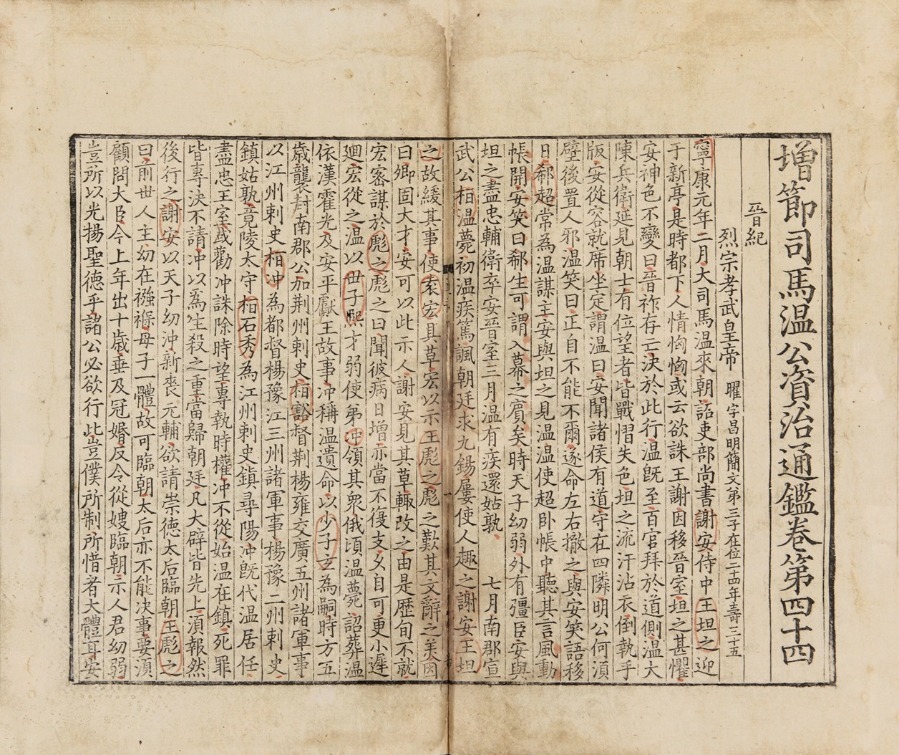 增節司馬溫公資治通鑑卷第四十四
晉紀
烈宗孝武皇帝 曜字昌明簡文第三子在位二十四年壽三十五
寧康元年二月大司馬溫來朝詔吏部尚書謝安侍中王坦之迎
于新亭是時都下人情恟恟或云欲誅王謝因移晉室坦之甚懼
安神色不變曰晉祚存亡決於此行溫旣至百官拜於道側溫大
陳兵衛延見朝士有位望者皆戰慴失色坦之流汗沾衣倒執手
版安從容就席坐定謂溫曰安聞諸侯有道守在四隣明公何湏
壁後置人邪溫笑曰正自不能不爾遂命左右撤之與安笑語移
日郗超常為溫謀主安與坦之見溫溫使超卧帳中聽其言風動
帳開安笑曰郗生可謂入幕之賔矣時天子幼弱外有彊臣安與
坦之盡忠輔衛卒安晉室三月溫有疾還姑孰 七月南郡宣
武公桓溫薨初溫疾篤諷朝廷求九錫屢使人趣之謝安王坦
之故緩其事使袁宏具草宏以示王彪之彪之歎其文辭之美因
曰卿固大才安可以此示人謝安見其草輙改之由是歷旬不就
宏宻謀於彪之彪之曰聞彼病日增亦當不復支乆自可更小遲
廻宏從之溫以世子熈才弱使弟冲領其衆俄頃溫薨詔葬溫
依漢霍光及安平獻王故事冲稱溫遺命以少子玄為嗣時方五
歲襲封南郡公加荆州刺史桓豁督荆楊雍交廣五州諸軍事
以江州刺史桓冲為都督楊豫江三州諸軍事楊豫二州刺史
鎮姑孰竟陵太守桓石秀為江州刺史鎮尋陽冲旣代溫居任
盡忠王室或勸冲誅除時望專執時權冲不從始溫在鎮死罪
皆專決不請冲以為生殺之重當歸朝廷凡大辟皆先上湏報然
後行之謝安以天子幼冲新喪元輔欲請崇德太后臨朝王彪之
曰前世人主幼在襁褓母子一體故可臨朝太后亦不能決事要湏
顧問大臣今上年出十歲垂及冠婚反令從嫂臨朝示人君幼弱
豈所以光揚聖德乎諸公必欲行此豈僕所制所惜者大體耳安